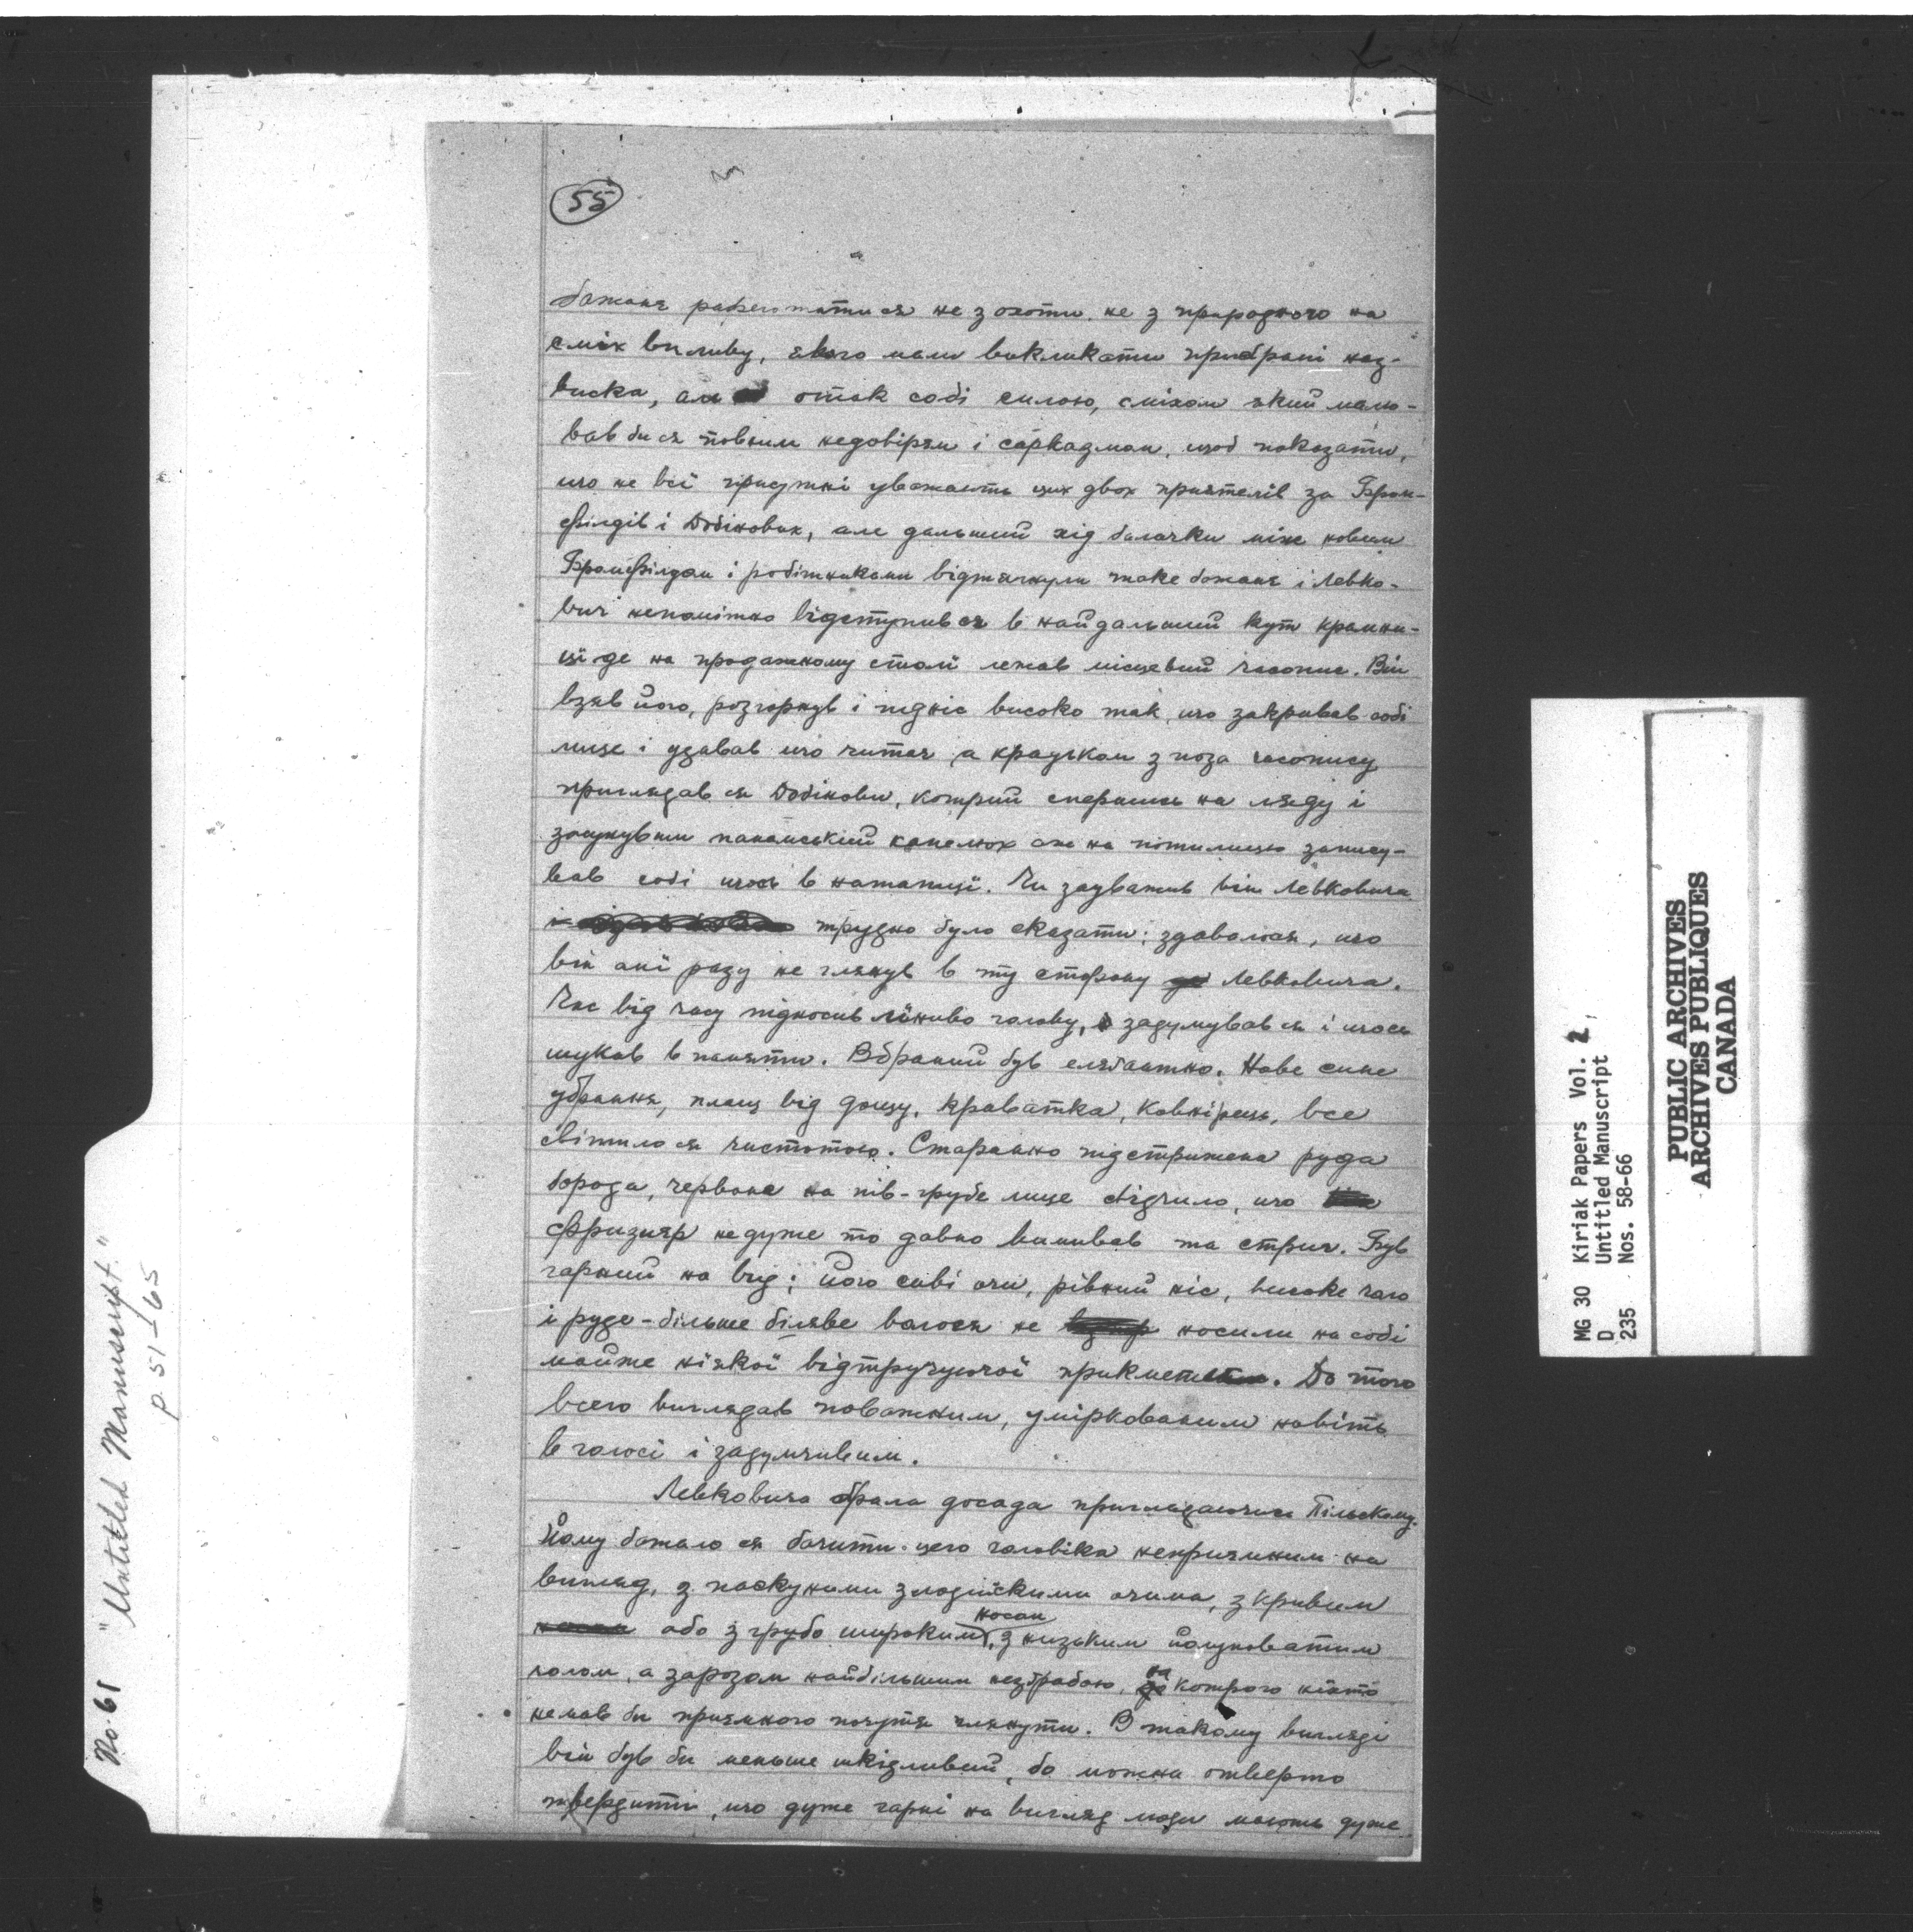 55
бажанє рареготатися не з охоти, не з природного на
сміх впливу, якого мали викликати прибрані наз-
виска, але отак собі силою, сміхом який малю-
вав би ся повним недовірям і сарказмом, щоб показати,
що не всі присутні уважають цих двох приятелів за Бром-
філдів і Добінових, але дальший хід балачки між новим
Бромфілдом і робітниками відтягнули таке бажанє і Левко-
вич непомітно відступив ся в найдальший кут крамни-
ці де на продажному столі лежав місцевий часопис. Він
взяв його, розгорнув і підніс високо так, що закривав собі
лице і удавав що читає, а крадьком з поза часопису
приглядав ся Добінови, котрий спершись на ляду і
засунувши панамський капелюх аж на потилицю запису-
вав собі щось в нотатці. Чи зауважив він Левковича
трудно було сказати; здавалося, що
він ані разу не глянув в ту сторону Левковича.
Час від часу підносив ліниво голову, задумував ся і щось
шукав в памяти. Вбраний був елєґантно. Нове синє
убрання, плащ від дощу, краватка, ковнірець, все
світило ся чистотою. Старанно підстрижена руда
борода, червоне на пів-грубе лице свідчило, що
фризиєр не дуже то давно вимивав та стриг. Був
гарний на вид; його сиві очи, рівний ніс, високе чоло
і руде - більше біляве волося не носили на собі
майже ніякої відтручуючої прикмети. До того
всего виглядав поважним, уміркованим навіть
в голосі і задумчивим.
Левковича брала досада приглядаючись Пільському.
Йому бажало ся бачити цего чоловіка неприємним на
вигляд, з паскудними злодійскими очима, з кривим
або з грубо широким носом, з низьким
чолом, а заразом найбільшим незграбою, на котрого ніхто
не мав би приємного почутя глянути. В такому вигляді
він був би меньше шкідливий, бо можна отверто
твердити, що дуже гарні на вигляд люди мають дуже
No. 61 "Untitled Manuscript."
p. 51-65
MG 30 Kiriak Papers Vol. 2
D Untitled Manuscript
235 Nos. 58-66
PUBLIC ARCHIVES
ARCHIVES PUBLIQUES
CANADA